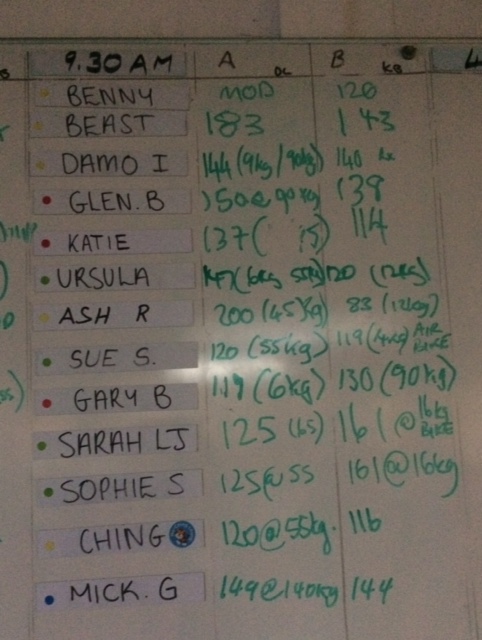 9.30 AM A DL B KB
BENNY MOD 120
BEAST 183 143
DAMO I 144 (9kg/90kg) 140 Rx
GLEN. B 150@90kg 139
KATIE 137( 15) 114
URSULA 55kg) 120 (12kg)
ASH R 200 (45kg) 83 (12kg)
SUE S. 120 (55kg) 119 (4kg) AIR BIKE
GARY B 119 (6kg) 130 (90kg)
SARAH LJ 125 (65) 161 @ 16kg BIKE
SOPHIE S 125@55 161@16kg
CHING 120@55kg. 116
MICK. G 149@140kg 144